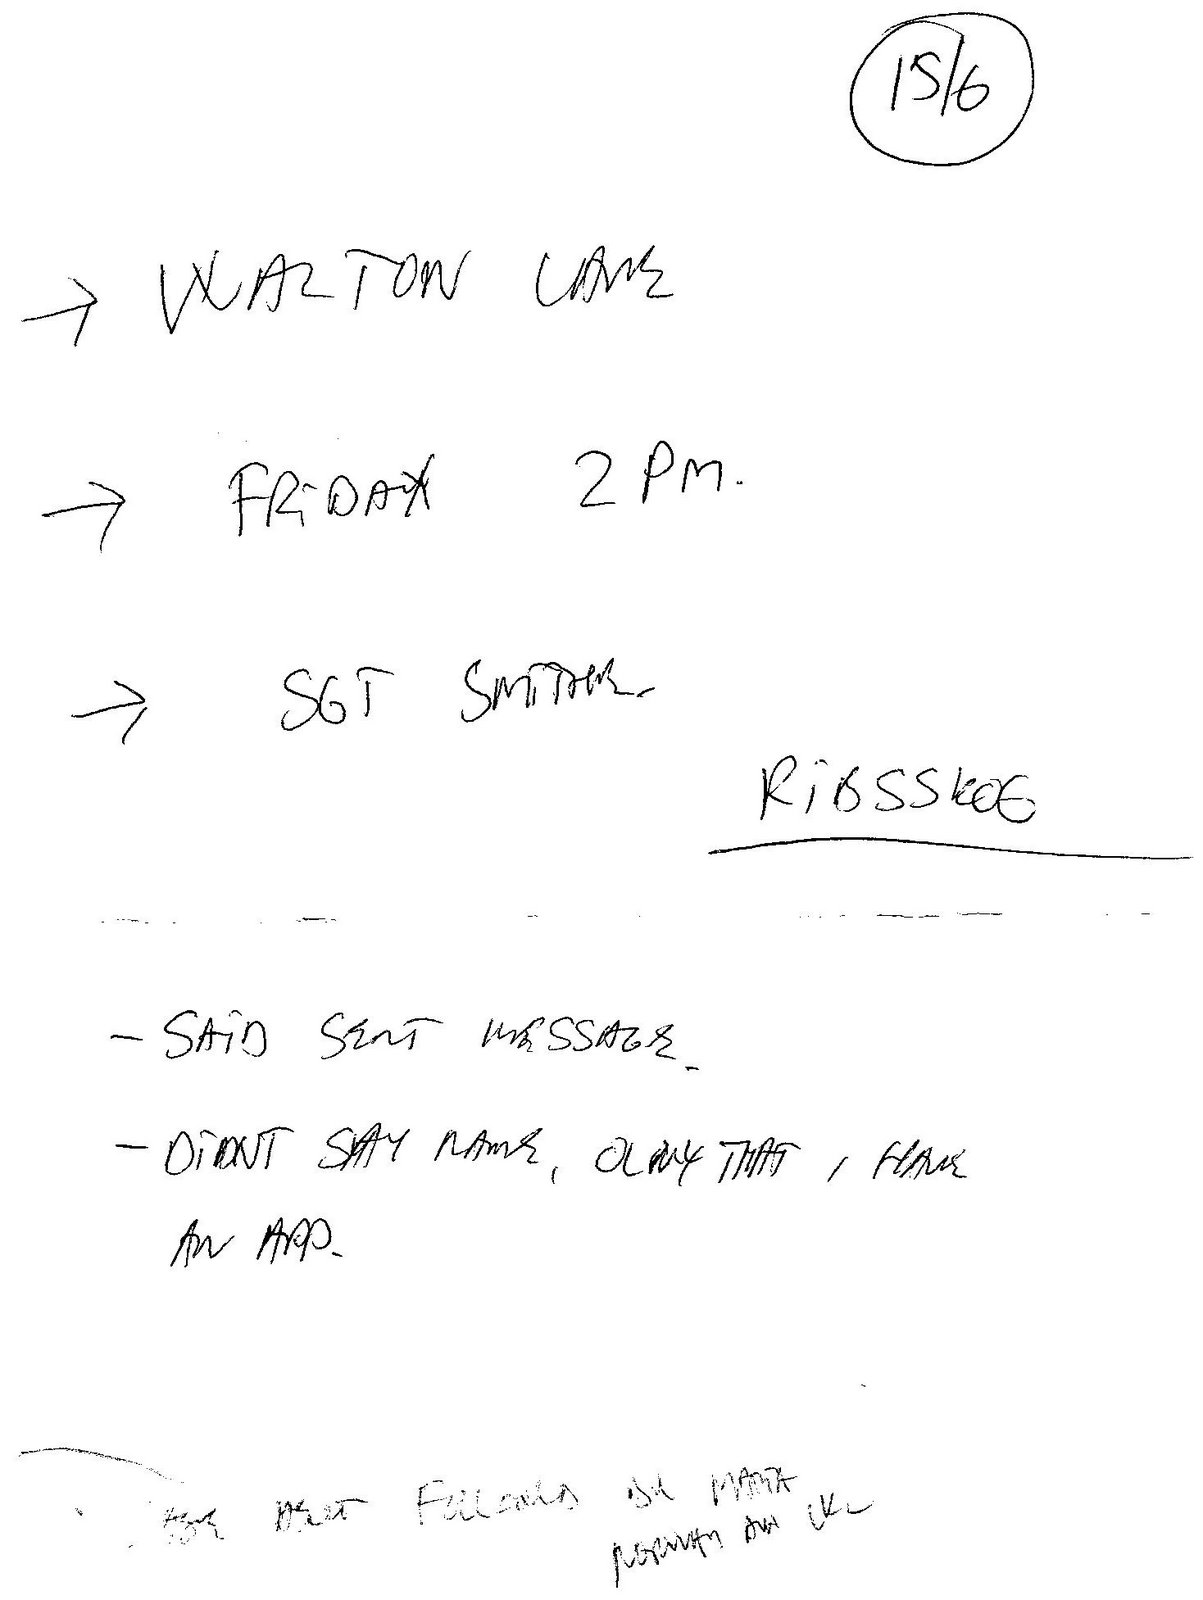 15/6
→ WALTON LANE
→ FRIDAY 2 PM.
→ SGT
RIBSSKOG
- SAID SENT MESSAGE.
- DIDNT SAY NAME, OLNY THAT, HAVE
AN APP.
FOLLOWED BY MAFIA